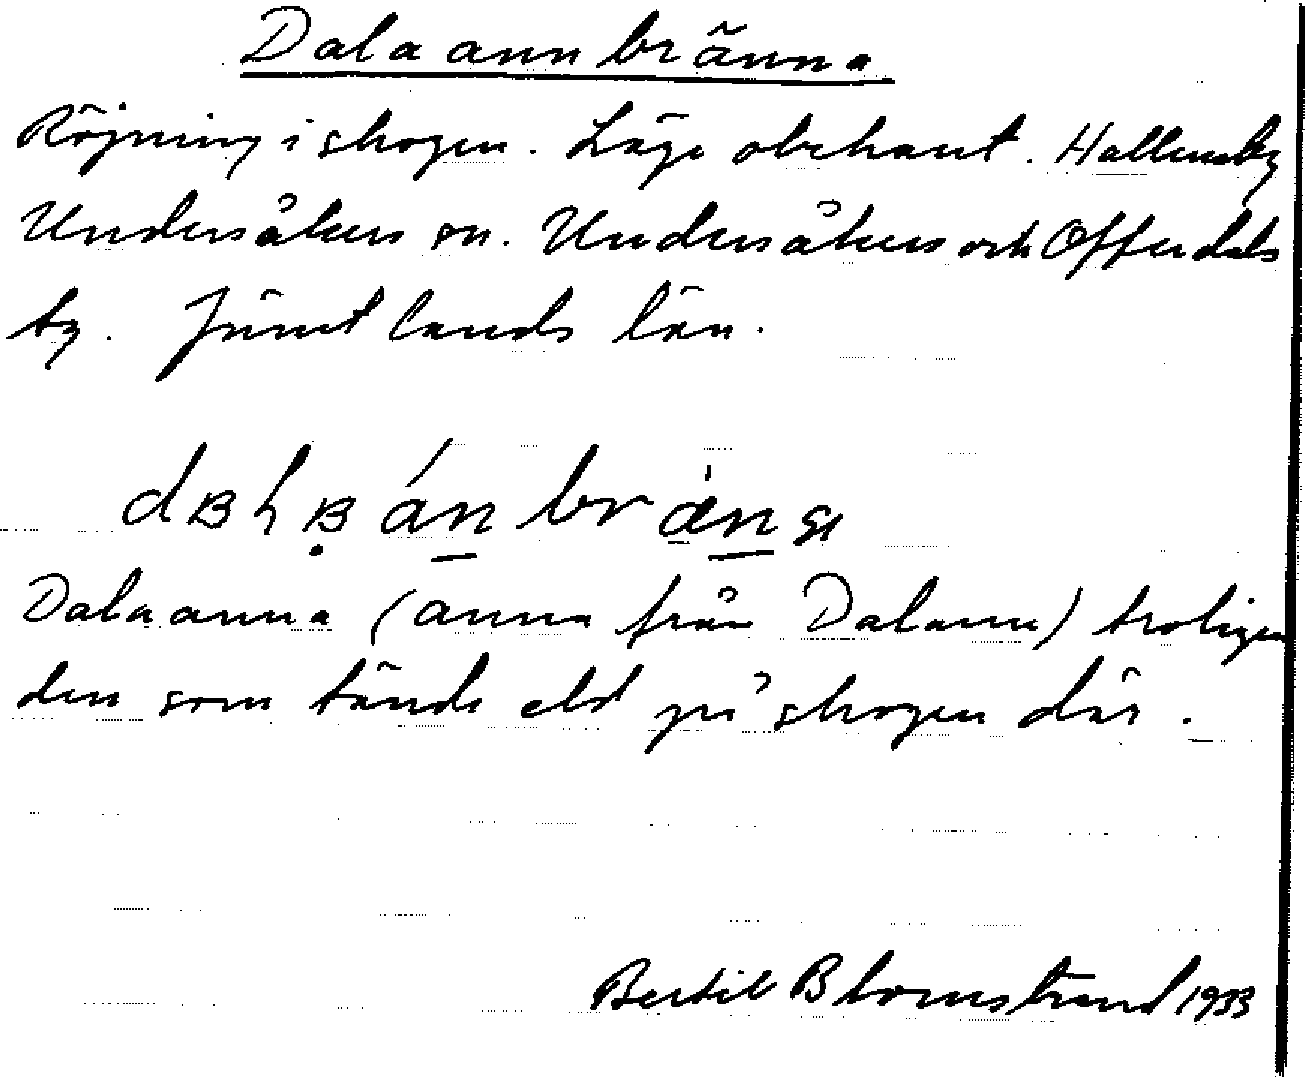 Dalaannbränna
Röjning i skogen. Läge obekant. Hallensby
Undersåkers sn. Undersåkers och Offerdals
tg. Jämtlands län.
Dalaanna (anna från Dalarne) troligen
den som tände eld på skogen där.
Bertil Blomstrand 1933